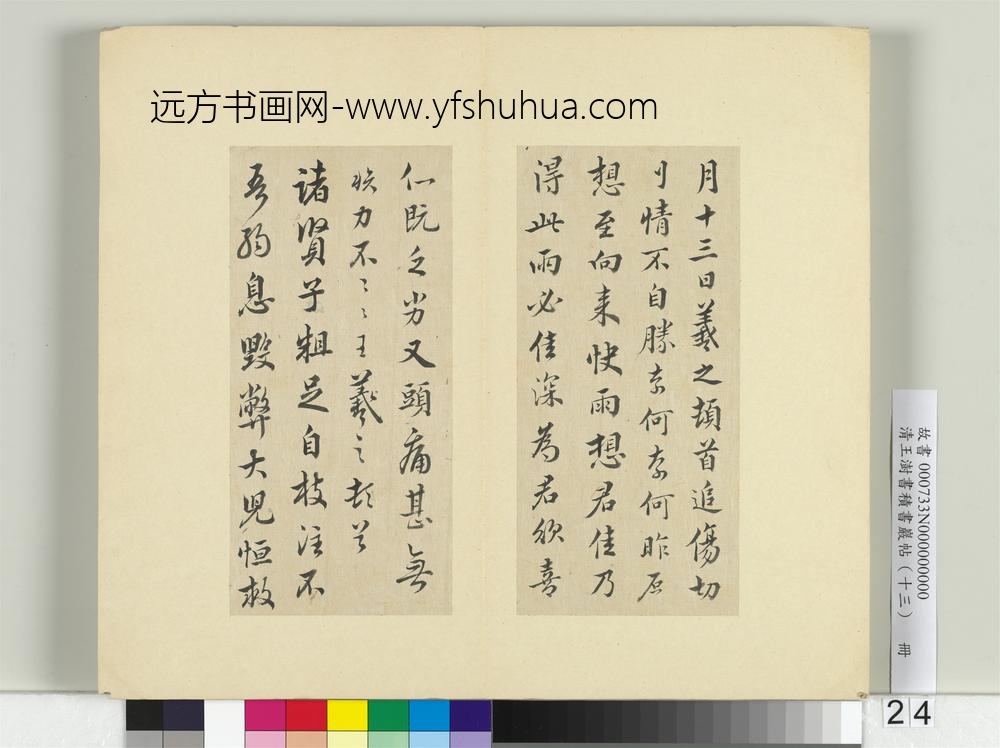 远方书画网-www.yfshuhua.com
月十三日羲之頓首追傷切
刂情不自勝奈何奈何昨
想至向来快雨想君佳乃
得此雨必佳深為君欣喜
仁既乏劣又頭痛甚無
力不〻〻王羲之頓首
諸賢子粗足自枝注不
吾弱息毀弊大兒恒救
故書 000733N000000000
清王澍書積書巖帖（十三） 冊
24